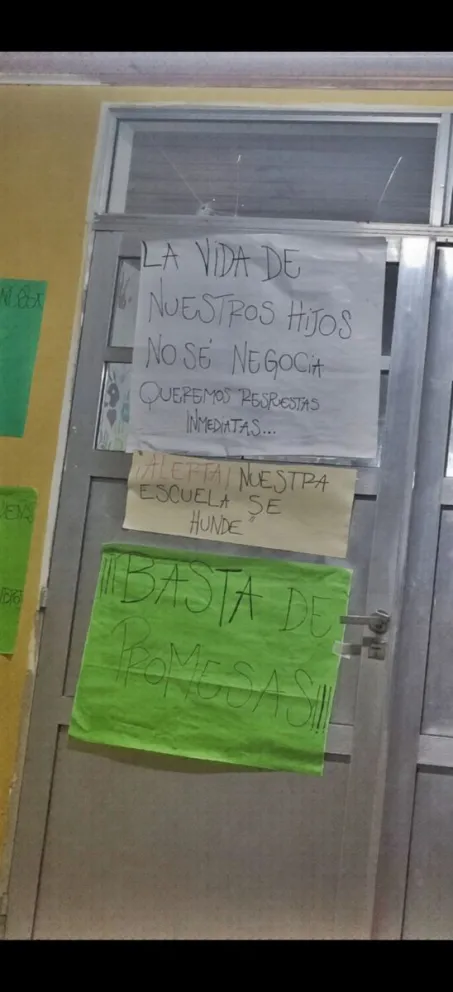 LA VIDA DE
NUESTROS HIJOS
NO SÉ NEGOCIA
QUEREMOS RESPUESTAS
INMEDIATAS...
¡ALERTA! NUESTRA
ESCUELA SE
HUNDE"
¡¡¡BASTA DE
PROMESAS!!!